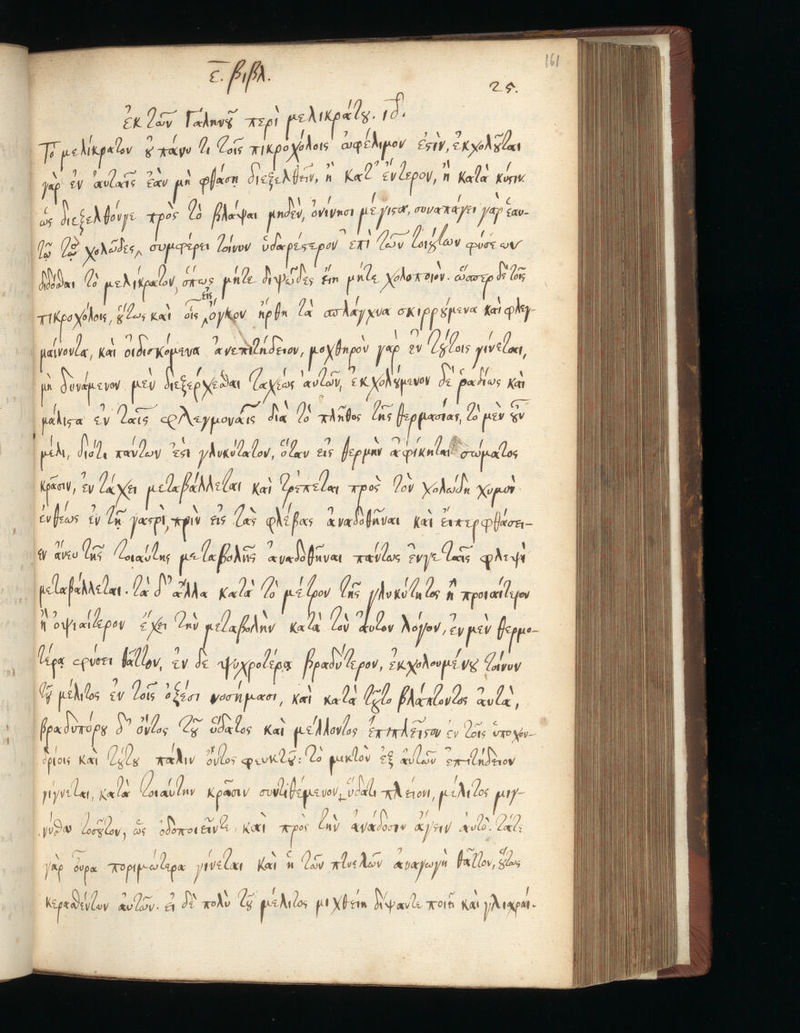 ε. βιβλ.
161
25.
ἐκ τῶν Γαληνοῦ περὶ μελικράτου. ιδ.
Τὸ μελίκρατον οὐ πάνυ τι τοῖς πικροχόλοις ὠφέλιμον ἐστὶν, ἐκχολοῦται
γὰρ ἐν αὐταῖς ἐὰν μὴ φθάση διεξελθεῖν, ἢ κατ' ἔντερον, ἢ κατὰ κύστιν.
ὡς διεξελθόν γε πρὸς τὸ βλάψαι μηδὲν, ὀνίνησι μέγιστα, συναπάγει γὰρ ἑαυ-
τῷ τὸ χολῶδες, συμφέρει τοίνυν ὑδαρέστερον ἐπὶ τῶν τοιούτων φύσεων
δίδοσθαι τὸ μελίκρατον, ὅπως μήτε διψῶδες εἴη μήτε χολοποιὸν. ὥσπερ δὲ τοῖς
πικροχόλοις, οὕτως καὶ οἷς εἰς ὄγκον ἤρθη τὰ σπλάγχνα σκιρρούμενα καὶ φλεγ-
μαίνοντα, καὶ οἰδισκόμενα ἀνεπιτήδειον, μοχθηρὸν γὰρ ἐν τούτοις γίνεται,
μὴ δυνάμενον μὲν διεξέρχεσθαι ταχέως αὐτῶν, ἐκχολούμενον δὲ ῥαδίως καὶ
μάλιστα ἐν ταῖς φλεγμοναῖς διὰ τὸ πλῆθος τῆς θερμασίας, τὸ μὲν οὖν
μέλι, διότι πάντων ἐστὶ γλυκύτατον, ὅταν εἰς θερμὴν ἀφίκηται σώματος
κρᾶσιν, ἐν τάχει μεταβάλλεται καὶ τρέπεται πρὸς τὸν χολώδη χυμὸν
ἐνθέως ἐν τῇ γαστρὶ, πρὶν εἰς τὰς φλέβας ἀναδοθῆναι καὶ εἴπερ φθάσει-
εν ἄνευ τῆς τοιαύτης μεταβολῆς ἀναδοθῆναι πάντως ἔν γε ταῖς φλεψὶ
μεταβάλλεται. τὰ δ' ἄλλα κατὰ τὸ μέτρον τῆς γλυκύτητος ἢ προιαίτερον
ἢ ὀψιαίτερον ἔχει τὴν μεταβολὴν κατὰ τὸν αὐτον λόγον, ἐν μὲν θερμο-
τέρα φύσει θᾶττον, ἐν δὲ ψυχροτέρα βραδύτερον, ἐκχολουμένου τοίνυν
τοῦ μέλιτος ἐν τοῖς ὀξέσι νοσήμασι, καὶ κατὰ τοῦτο βλάπτοντος αὐτὰ,
βραδυπόρου δ' ὄντος τοῦ ὕδατος καὶ μέλλοντος ἐπιπλεῖστον ἐν τοῖς ὑποχον-
δρίοις καὶ τούτου πάλιν ὄντος φευκτοῦ: τὸ μικτὸν ἐξ αὐτῶν ἐπιτήδειον
γίγνεται, κατὰ τοιαύτην κρᾶσιν συντιθέμενον, ὕδατι πλείονι, μέλιτος μιγ-
νύσθω τοσοῦτον, ὡς ὁδοποιεῖν τε καὶ πρὸς τὴν ἀνάδοσιν ἄγειν αὐτὸ. τά τε
γὰρ οὖρα ποριμώτερα γίνεται καὶ ἡ τῶν πτυέλων ἀναγωγὴ θᾶττον, οὕτως
κερασθέντων αὐτῶν. εἰ δὲ πολὺ τοῦ μέλιτος μιχθείη δίψαν τε ποιεῖ καὶ γλισχραί-